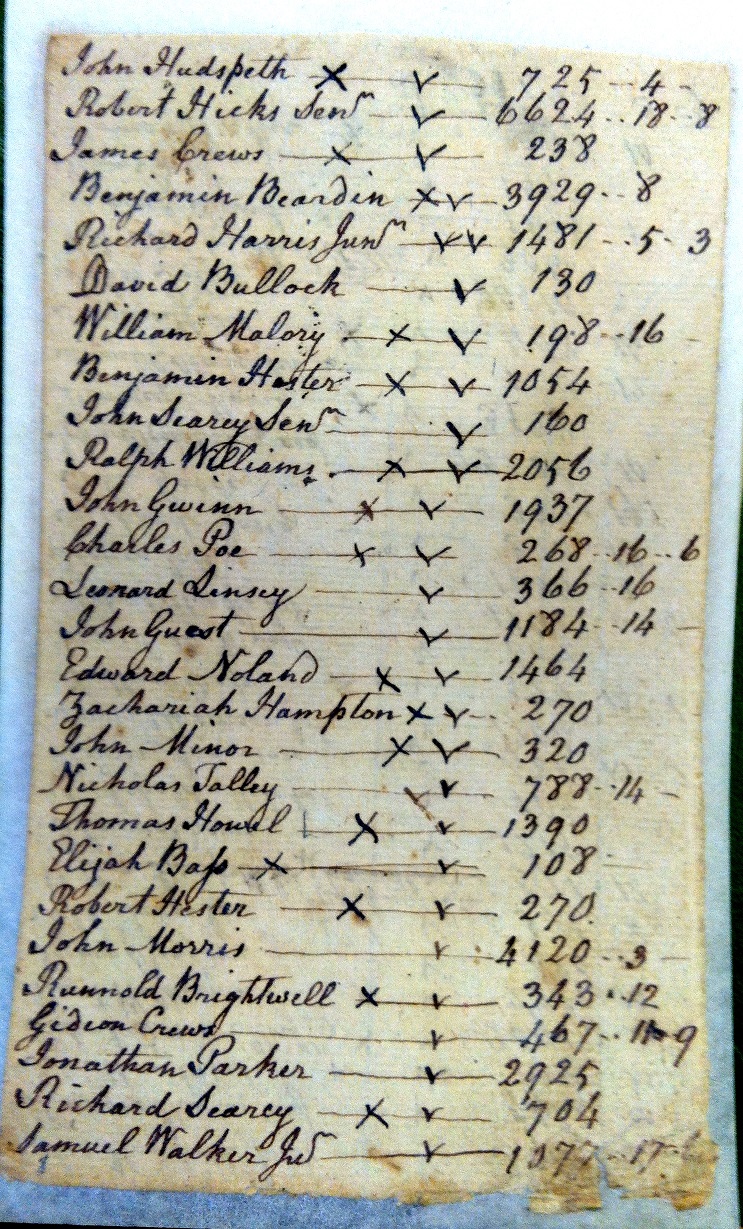 John Hudspeth × — v — 725 .. 4 -
Robert Hicks Senr — v — 6624 .. 18 .. 8
James Crews — × — v — 238
Benjamin Beardin × v — 3929 .. 8
Richard Harris Junr — v v — 1481 .. 5 .. 3
David Bullock — v 130
William Malory — × — v 198 .. 16 -
Benjamin Hester — × — v — 1054
John Searcy Senr — v 160
Ralph Williams — × — v — 2056
John Gwinn — × — v — 1937
Charles Poe — × — v — 268 .. 16 .. 6
Leonard Linsey — v — 366 .. 16
John Guest — v — 1184 .. 14 -
Edward Noland — × — v — 1464
Zachariah Hampton × v - .. 270
John Minor — × v — 320
Nicholas Talley — v — 788 .. 14 -
Thomas Howel — × — v — 1390
Elijah Baſs — × — v — 108 -
Robert Hester — × — v — 270
John Morris — v — 4120 .. 3 -
Runnold Brightwell × — v — 343 .. 12
Gideon Crews — v — 467 .. 11 .. 9
Jonathan Parker — v — 2925
Richard Searcy — × — v — 704
Samuel Walker Jur — v — .. 17